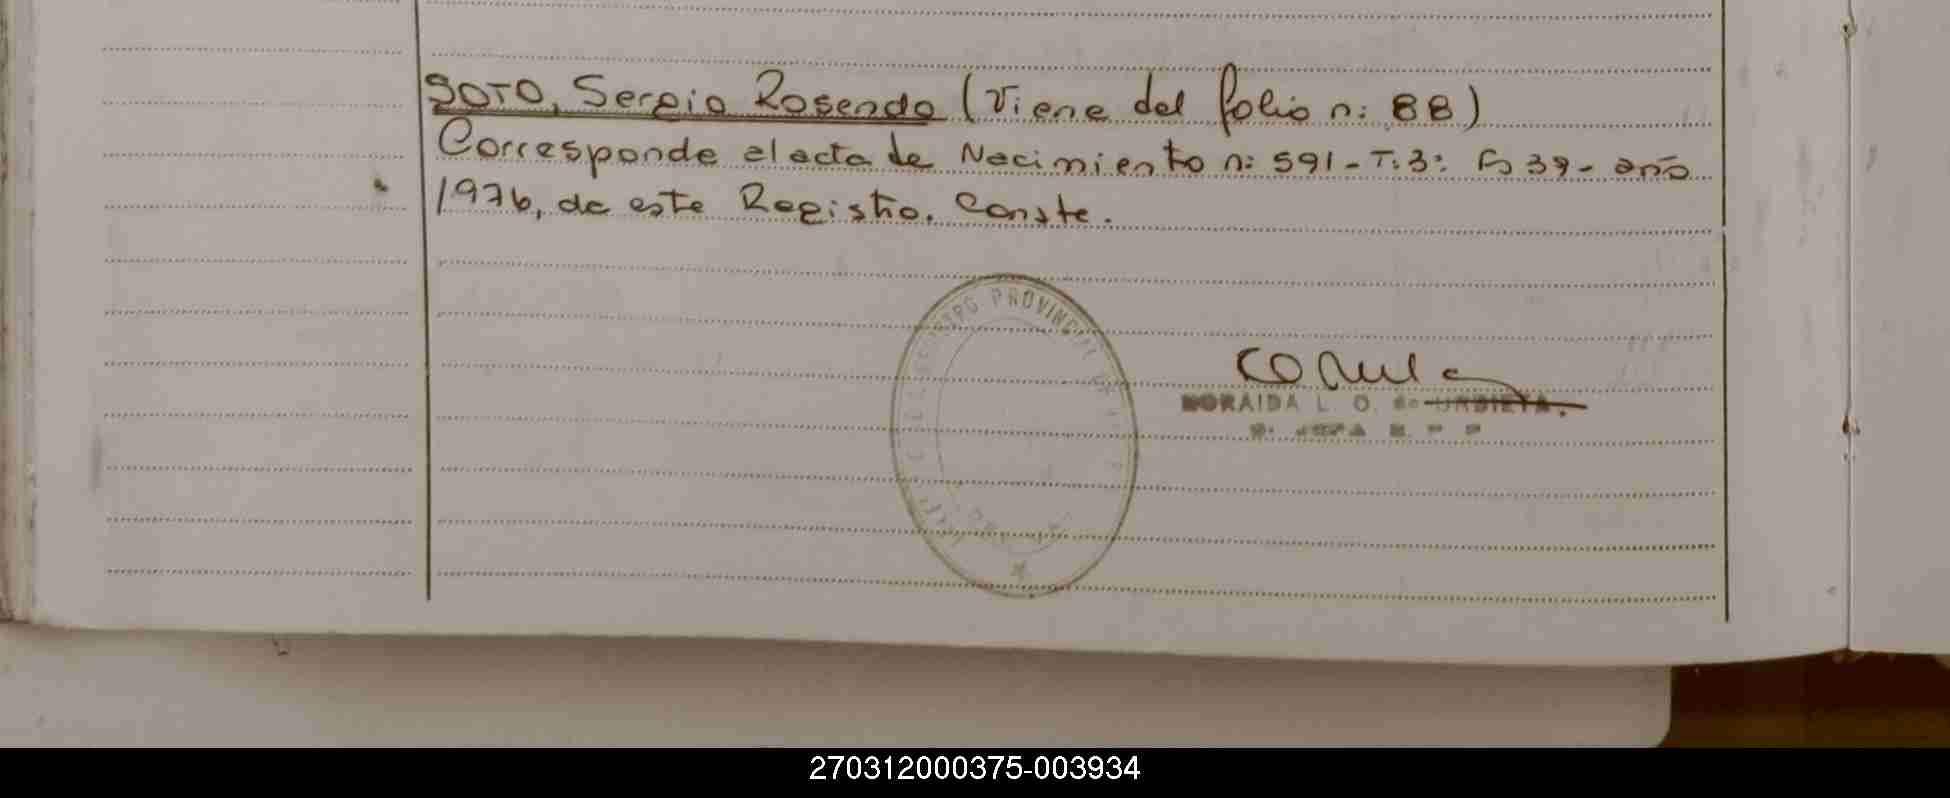 SOTO, Sergio Rosendo (Viene del folio n: 88)
Corresponde al acta de Nacimiento n: 591 - T: 3: Fs 39 - año
1976, de este Registro. Conste.
REGISTRO PROVINCIAL DE
NORAIDA L. O. de URBIETA.
270312000375-003934